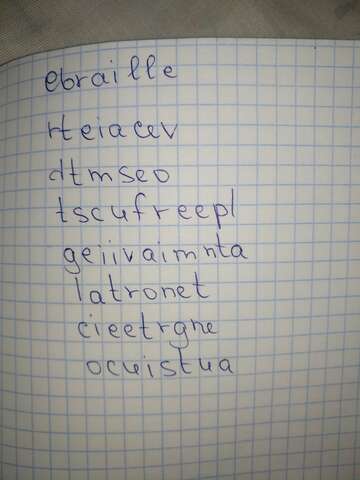 ebraille
rteiacev
dtmseo
tscufreepl
geiivaimnta
latronet
cieetrgne
ocuistua